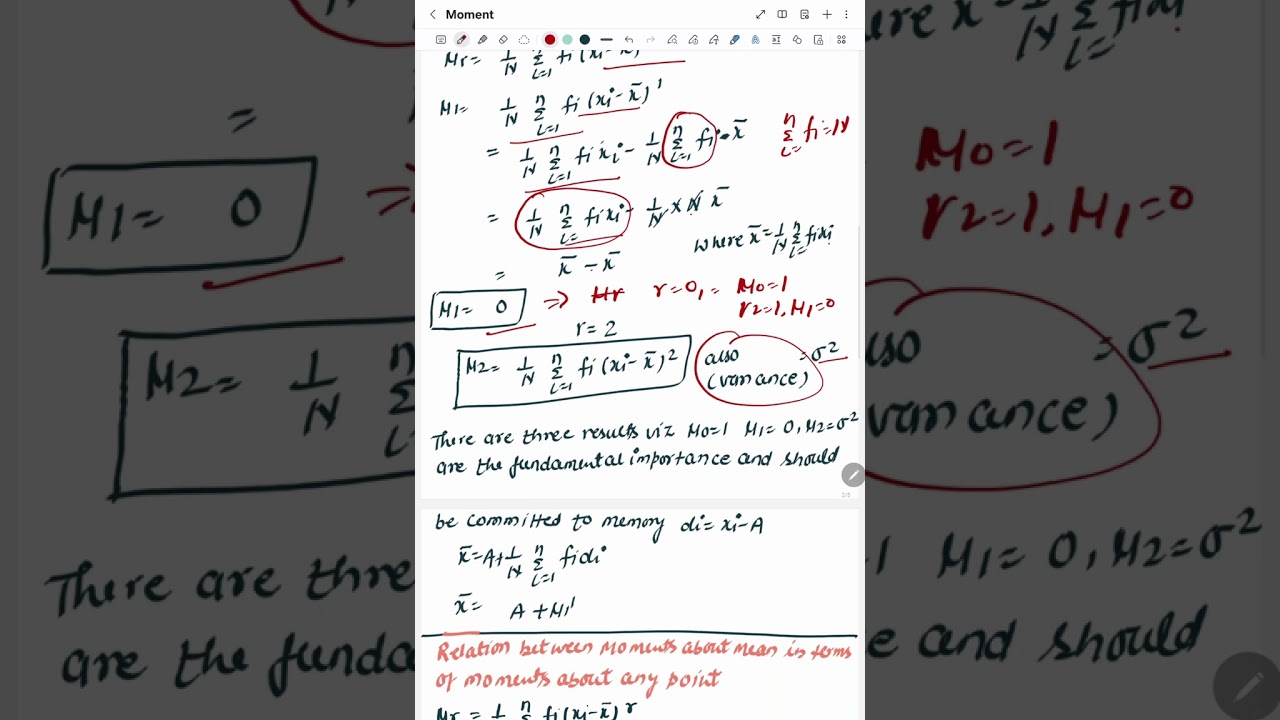 Moment
Mr= 1/N Σ i=1 fi(xi-x̄)
M1= 1/N n Σ i=1 fi(xi-x̄)'
= 1/N n Σ i=1 fi xi - 1/N n Σ i=1 fi · x̄ n Σ i= fi=N
= 1/N n Σ i= fixi - 1/N × N x̄
where x̄=1/N n Σ i=1 fixi
= x̄ - x̄
M1= 0 => Mr r=0, = M0=1
r2=1, M1=0
r=2
M2= 1/N n Σ i=1 fi(xi-x̄)2 also =σ2
(variance)
There are three results viz M0=1 M1=0, M2=σ2
are the fundamental importance and should
2/5
be committed to memory di=xi-A
x̄=A+1/N n Σ i=1 fidi
x̄= A+M1'
Relation between Moments about Mean in terms
of moments about any point
Mr= 1/N n Σ fi(xi-x̄)r